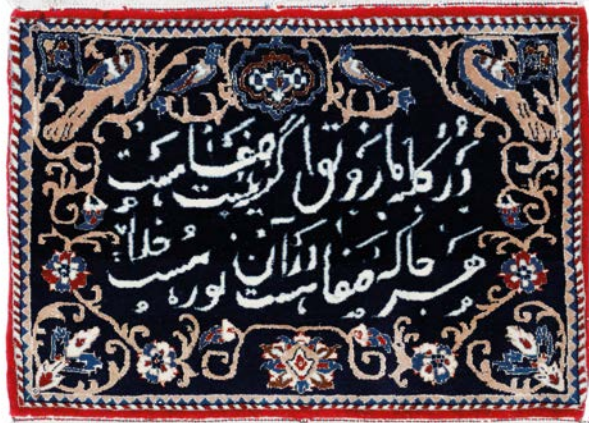 در کلبه ما رونق اگر نیست صفا هست
هر جا که صفا هست در آن نور خدا هست